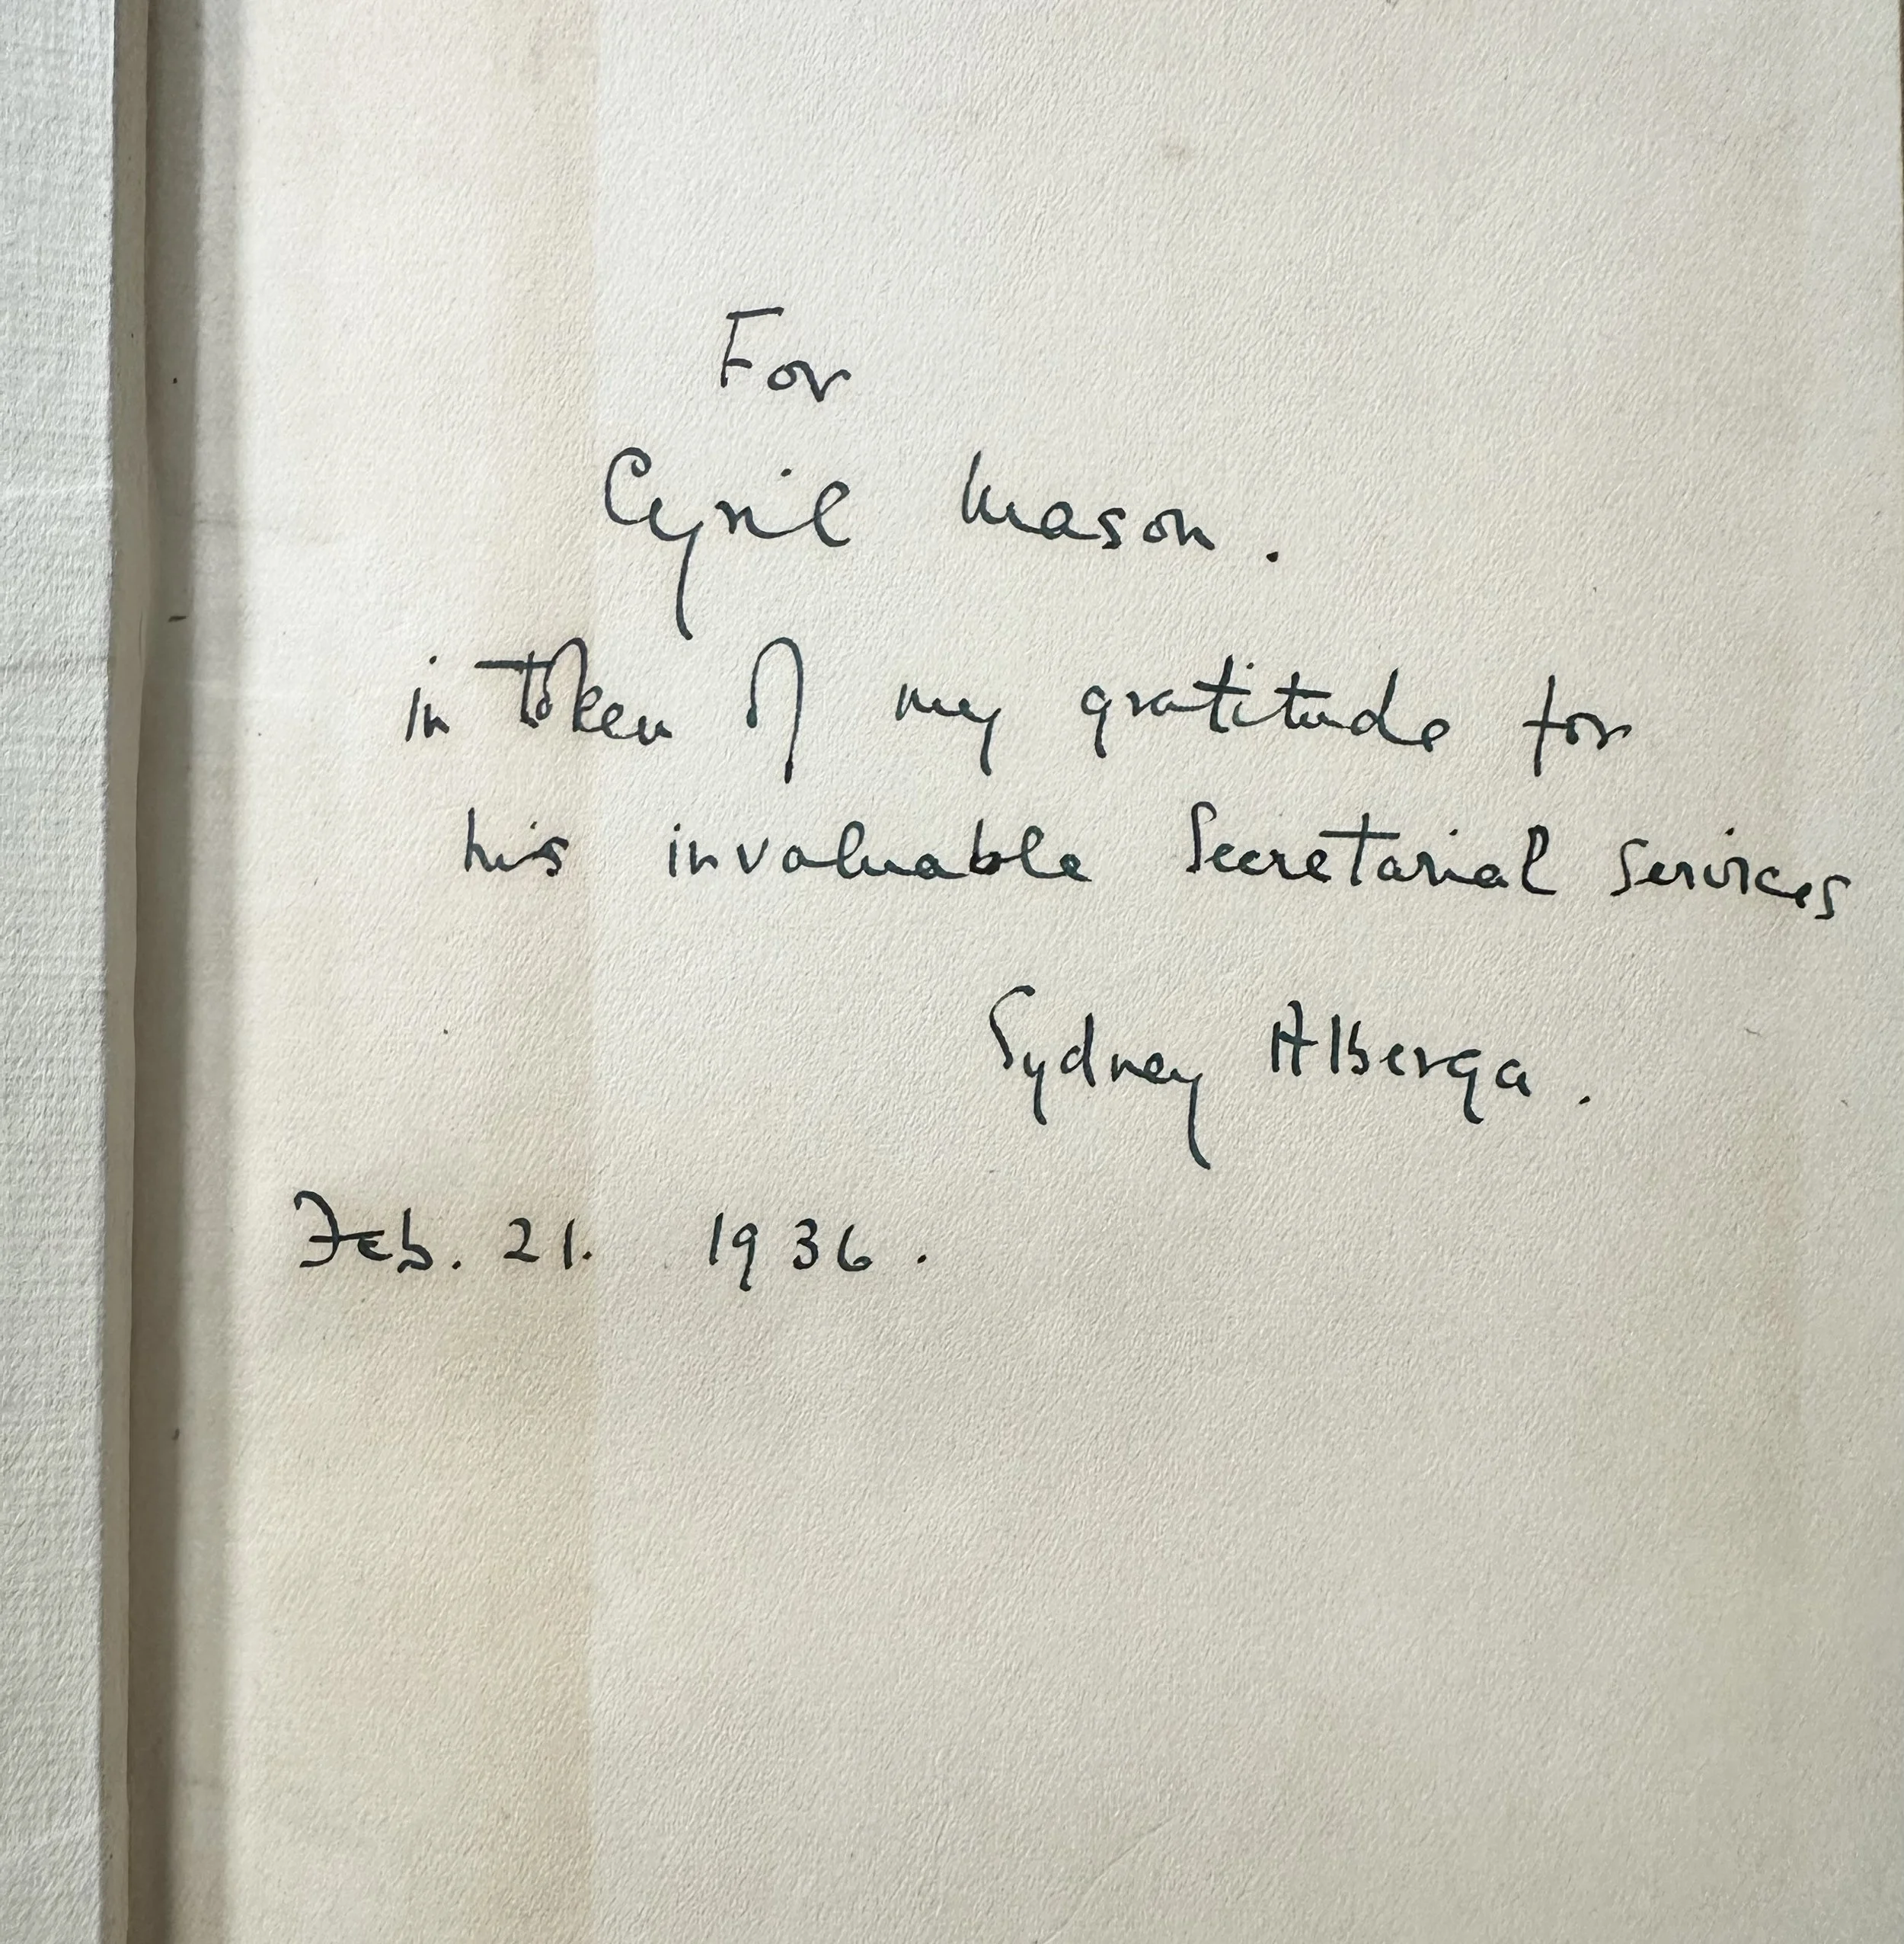 For
Cyril Mason.
in token of my gratitude for
his invaluable Secretarial Services
Sydney Alberga.
Feb. 21. 1936.